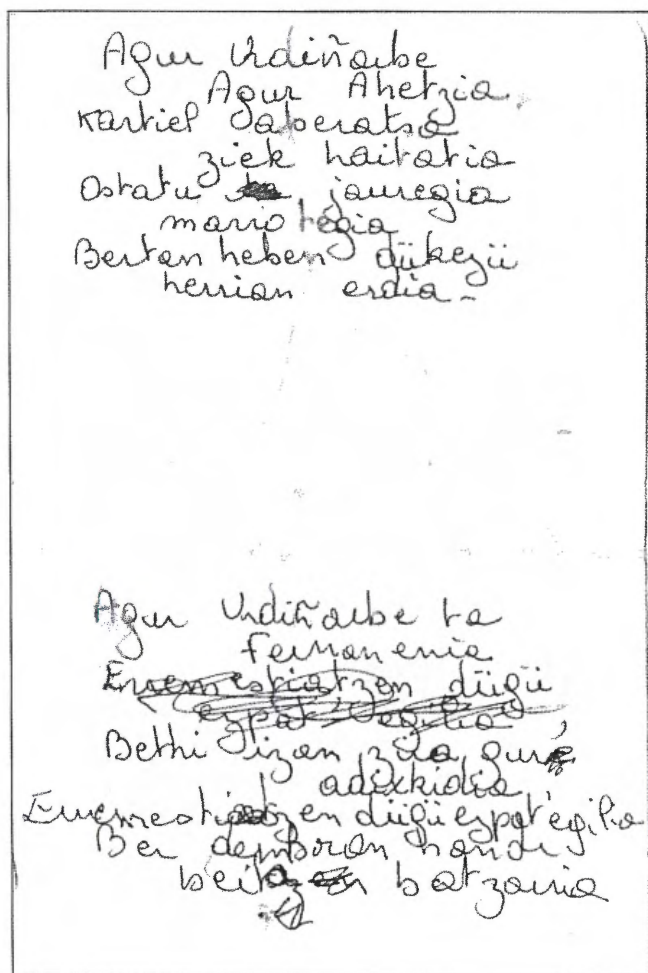 Agur Urdiñarbe
Agur Ahetzia
Kartiel aberatsa
ziek haitatia
Ostatu jauregia
mariotegia
Bertan heben dükezü
herrian erdia -
Agur Urdiñarbe ta
Fernanenia
Erremestiatzen dügü
ezpat egilia
Bethi izan züa gure
adixkidia
Erremestiatzen dügü ezpat'egilia
Ber denboran handi
beita batzarria